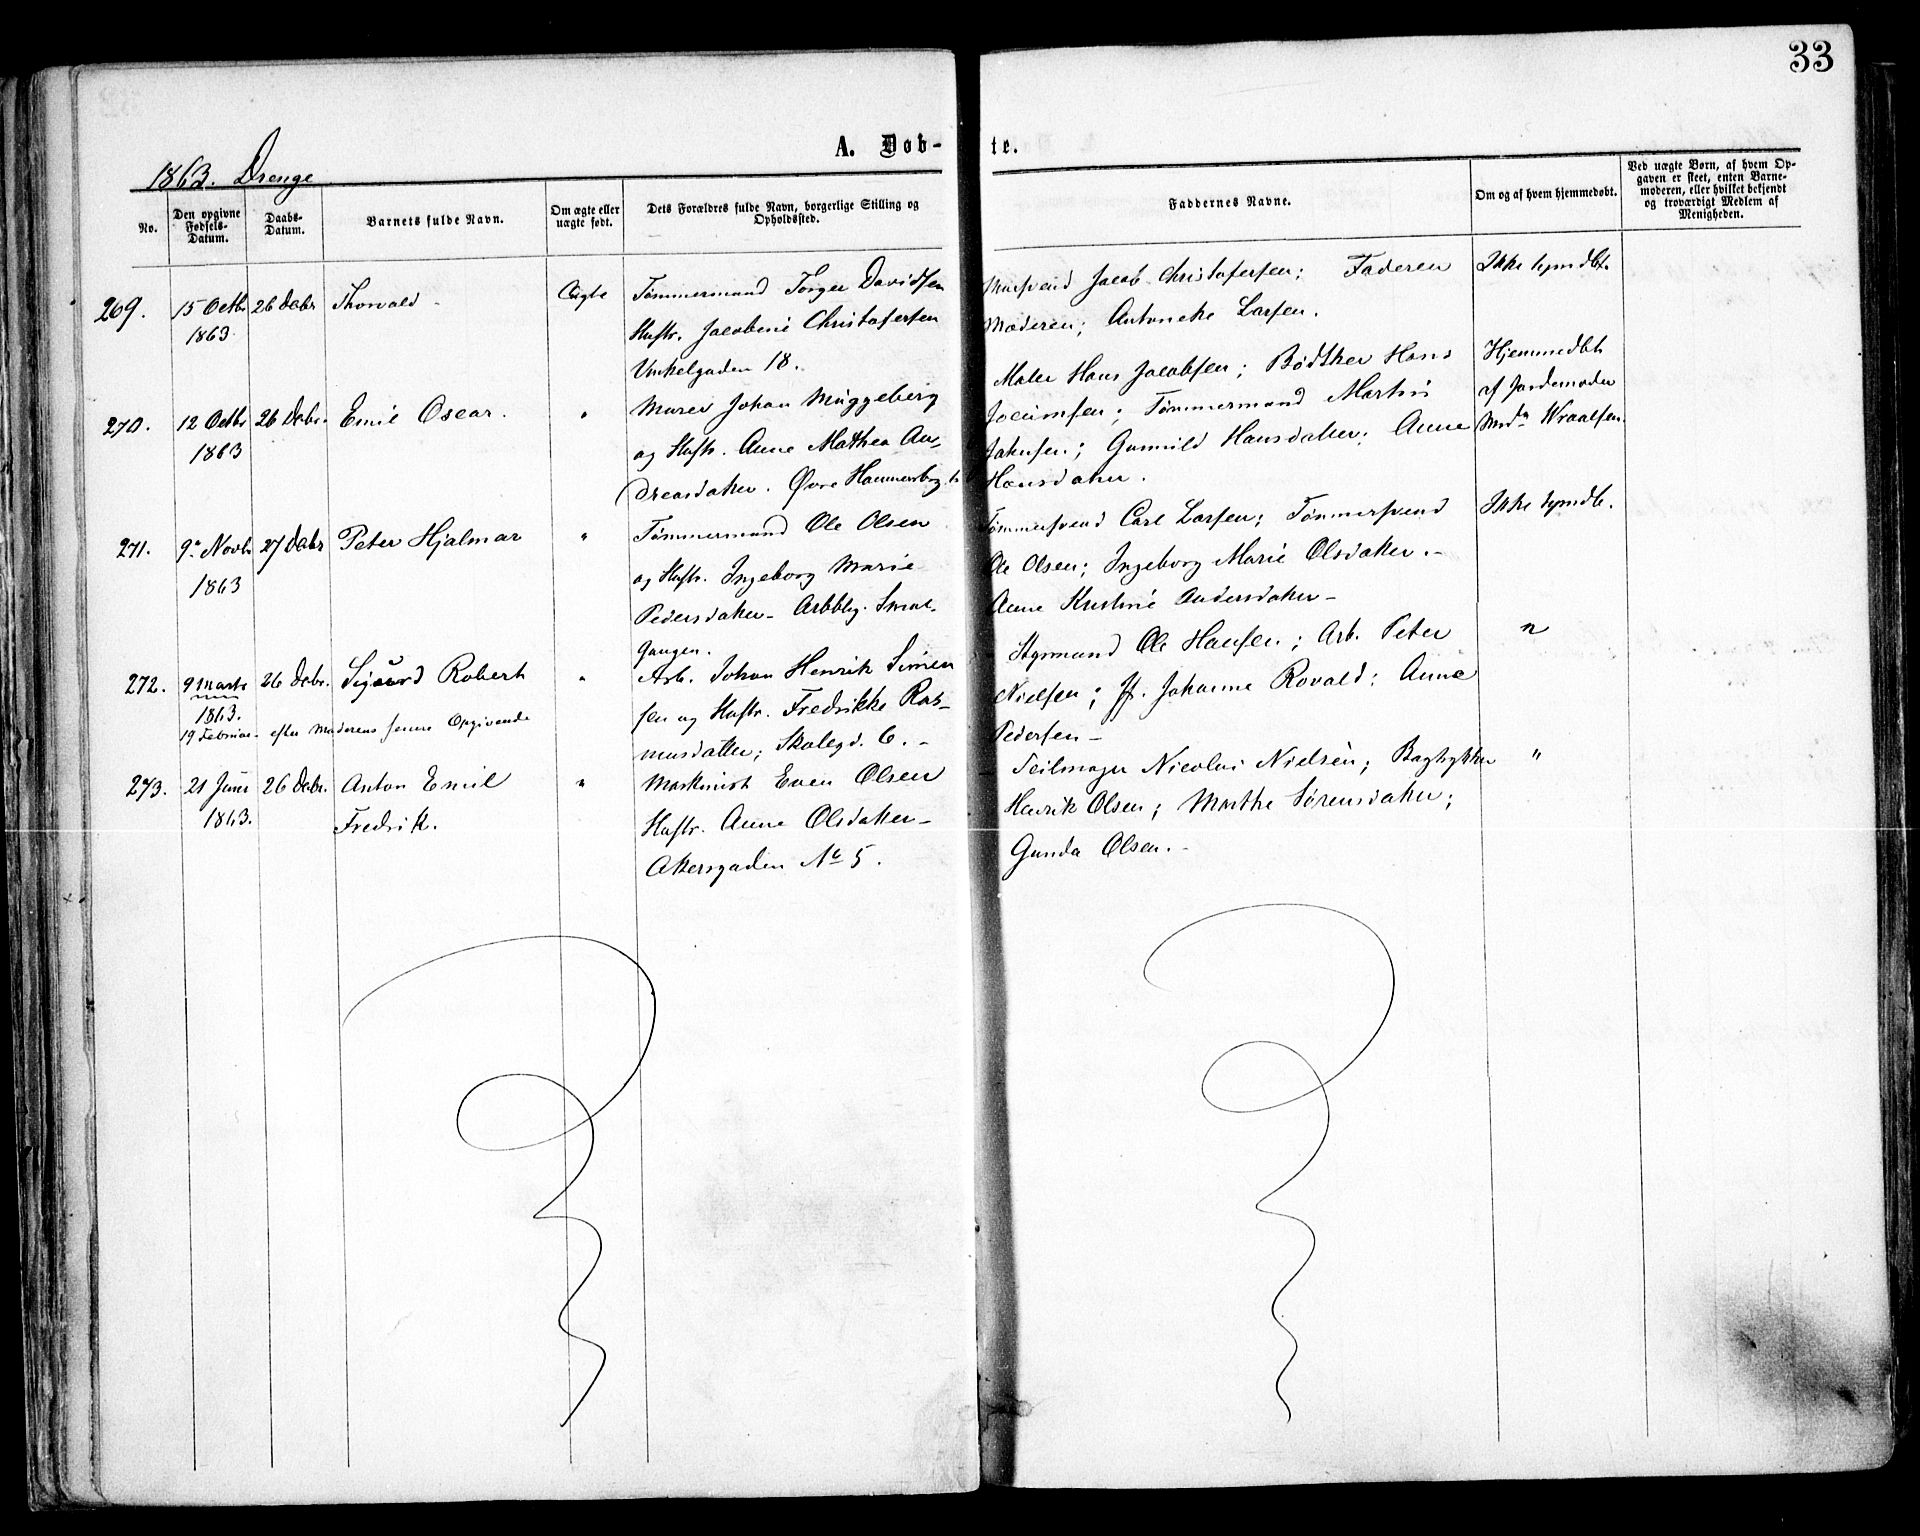 33
A. Døb-
te.
1863. Drenge
No.
Den opgivne Fødsels-Datum.
Daabs-Datum.
Barnets fulde Navn.
Om ægte eller uægte født.
Dets Forældres fulde Navn, borgerlige Stilling og Opholdssted.
Faddernes Navne.
Om og af hvem hjemmedøbt.
Ved uægte Børn, af hvem Opgaven er skeet, enten Barnemoderen, eller hvilket bekjendt og troværdigt Medlem af Menigheden.
269. 15 Octbr 26 Debr Thorvald Ægte Tømmermand Torger Davidsen
1863.
Hustr. Jacobine Christofersen
Vinkelgaden 18.
Mursvend Jacob Christofersen; Faderen
Moderen; Antoneke Larsen.
Ikke hjmdbt.
270. 12 Octbr 26 Debr. Emil Oscar. " Murer Johan Müggeberg
1863
og Hustr. Anne Mathea An-
dreasdatter. Øvre Hammersbg.
Maler Hans Jacobsen; Bødtker Hans
Jocumsen; Tømmermand Martin
Jakusen; Gunnild Hansdatter; Anne
Hansdatter.
Hjemmedbt
af Jordemoder
Md. Wraalsen.
271. 9e Novbr 27 Debr Peter Hjalmar " Tømmermand Ole Olsen
1863
og Hustr. Ingeborg Marie
Pedersdatter - Arbbg. Smal-
gangen.
Tømmersvend Carl Larsen; Tømmersvend
Ole Olsen; Ingeborg Marie Olsdatter. -
Anne Kristine Andersdatter -
Ikke hjmdb.
272. 9 Marts 26 Debr. Sigurd Robert " Arb. Johan Henrik Simen
1863.
19 Februar - efter Moderens senere Opgivende
sen og Hustr. Fredrikke Ras-
musdatter; Skolegd. 6. -
Styrmand Ole Hansen; Arb. Peter
Nielsen; Jf. Johanne Rovald; Anne
Pedersen -
"
273. 21 Juni 26 Debr. Anton Emil " Maskinist Even Olsen
1863.
Fredrik.
Hustr. Anne Olsdatter -
Akersgaden No 5.
Seilmager Nicolai Nielsen; Baghytter
Henrik Olsen; Marthe Sørensdatter;
Gunda Olsen. -
"